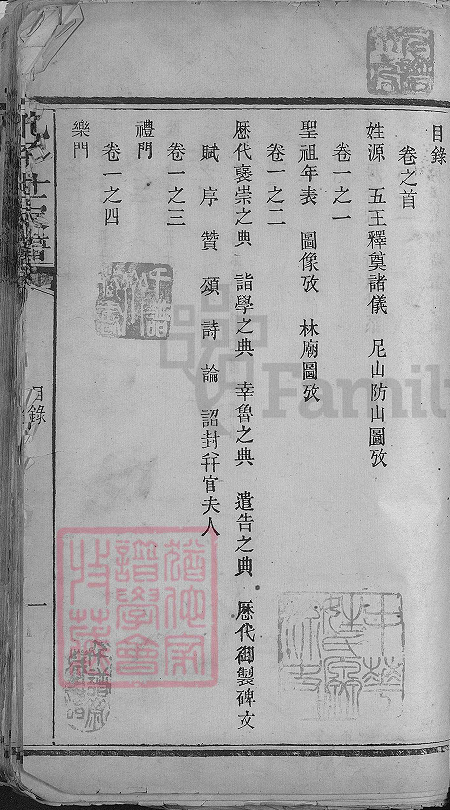 目錄
卷之首
姓源 五王釋奠諸儀 尼山防山圖攷
卷一之一
聖祖年表 圖像攷 林廟圖攷
卷一之二
歷代褒崇之典 詣學之典 幸魯之典 遣告之典 歷代御製碑文
賦 序 贊 頌 詩 論 詔封幷官夫人
卷一之三
禮門
卷一之四
樂門
目錄
一
猶他家譜學會特藏
中華姓氏家
千譜
Famil